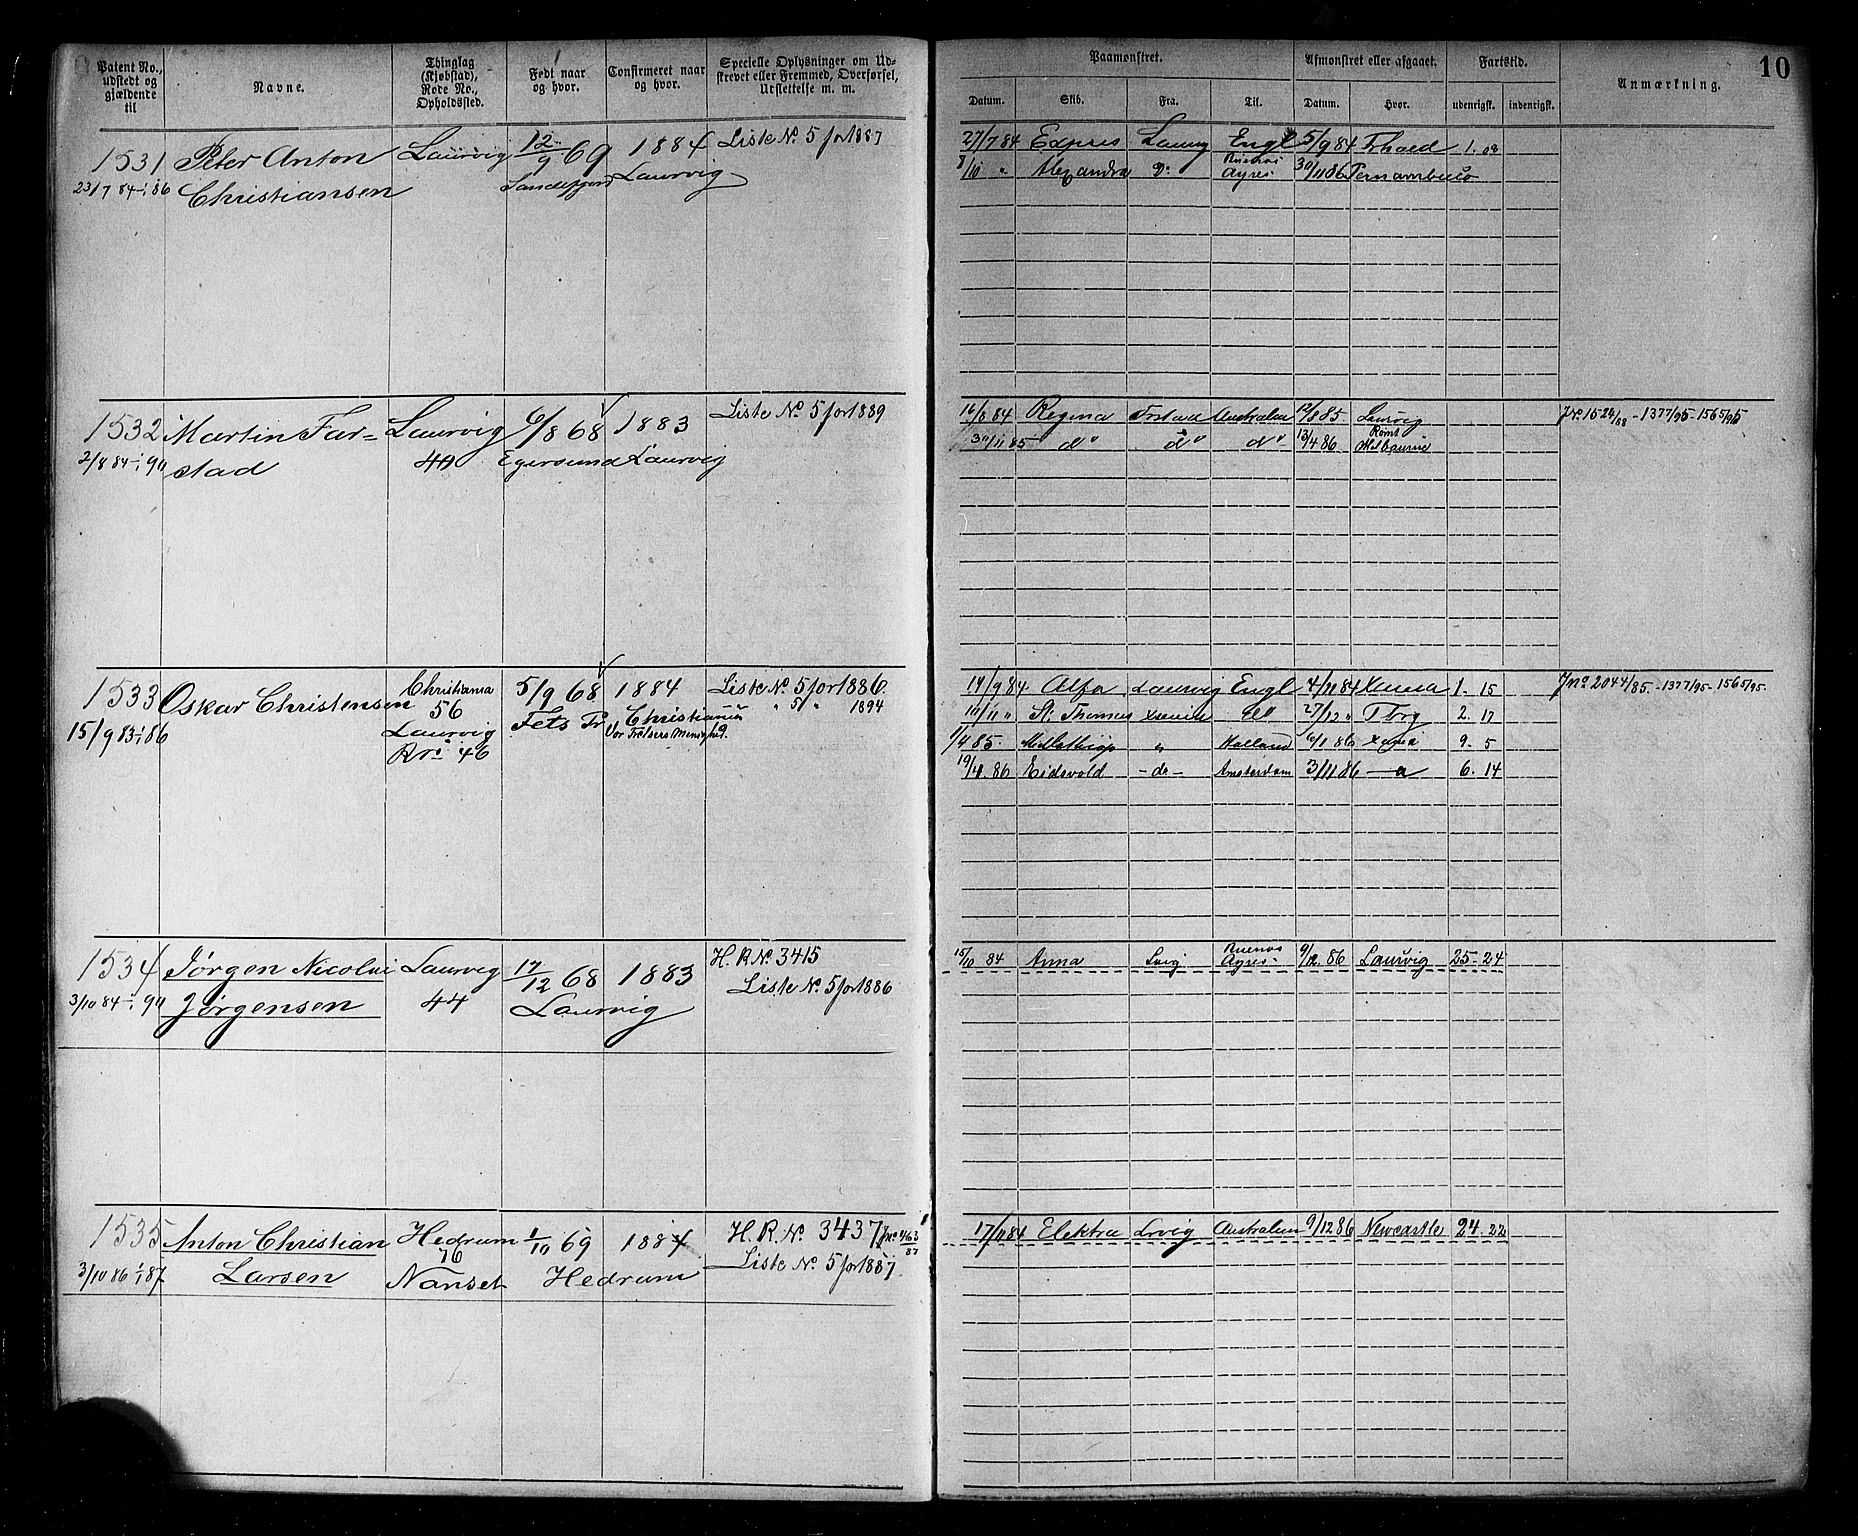 10
Patent No., udstedt og gjældende til
Navne.
Thinglag (Kjøbstad), Rode No., Opholdssted.
Født naar og hvor.
Confirmeret naar og hvor.
Specielle Oplysninger om Udskrevet eller Fremmed, Overførsel, Udslettelse m. m.
Paamønstret.
Afmønstret eller afgaaet.
Fartstid.
Anmærkning.
Datum. Skib. Fra. Til. Datum. Hvor. udenrigsk. indenrigsk.
1531 Peter Anton Laurvig 12/9 69 1884 Liste No. 5 for 1887
23/7 84-1/1 86 Christiansen Sandefjord Laurvig
27/7 84 Expres Laurvig Engl 5/9 84 1.
8/10 " Alexandra Do Buenos Ayres 30/11 86 Pernambuco
1532 Martin Far= Laurvig 6/8 68 1883 Liste No. 5 for 1889
2/8 84-1/1 90 stad 40 Egersund Laurvig
16/8 84 Regina Australien 85 Laurvig
30/11 85 do do do 13/4 86 Rømt Melbourne
- 1377/95 - 1565/95
1533 Oskar Christensen Christiania 56 5/9 68 1884 Liste No. 5 for 1886.
" " 5 " 1894
15/9 83-1/1 86 Laurvig Fets Pr Christiania
R No. 46 Vor Frelsers Menighed.
14/9 84 Alfa Laurvig Engl 4/11 84 1. 15
10/11 " St. Thomas 27/12 " 2. 17
85. " Holland 6/1 86 9. 5
19/4 86 Eidsvold -do- Amsterdam 3/11 86 6. 14
Jno. 2044/85. - 1377/95 - 1565/95.
1534 Jørgen Nicolai Laurvig 17/12 68 1883 H. R. No. 3415
3/10 84-1/1 90 Jørgensen 44 Laurvig Liste No. 5 for 1886
15/10 84 Anna Lvig Buenos Ayres 9/12 86 Laurvig 25-24
1535 Anton Christian Hedrum 76 1/10 69 1884 H. R. No. 3437
3/10 86-1/1 87 Larsen Nanset Hedrum Liste No. 5 for 1887.
17/11 84 Elektra Lrvig Australien 9/12 86 Newcastle 24-22